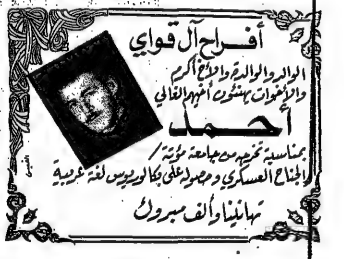 أفراح آل قواي
الوالد والوالدة والأخ أكرم
والأخوات يهنئون أخيهم الغالي
أحمد
بمناسبة تخرجه من جامعة مؤتة /
الجناح العسكري وحصوله على بكالوريوس لغة عربية
تهانينا وألف مبروك